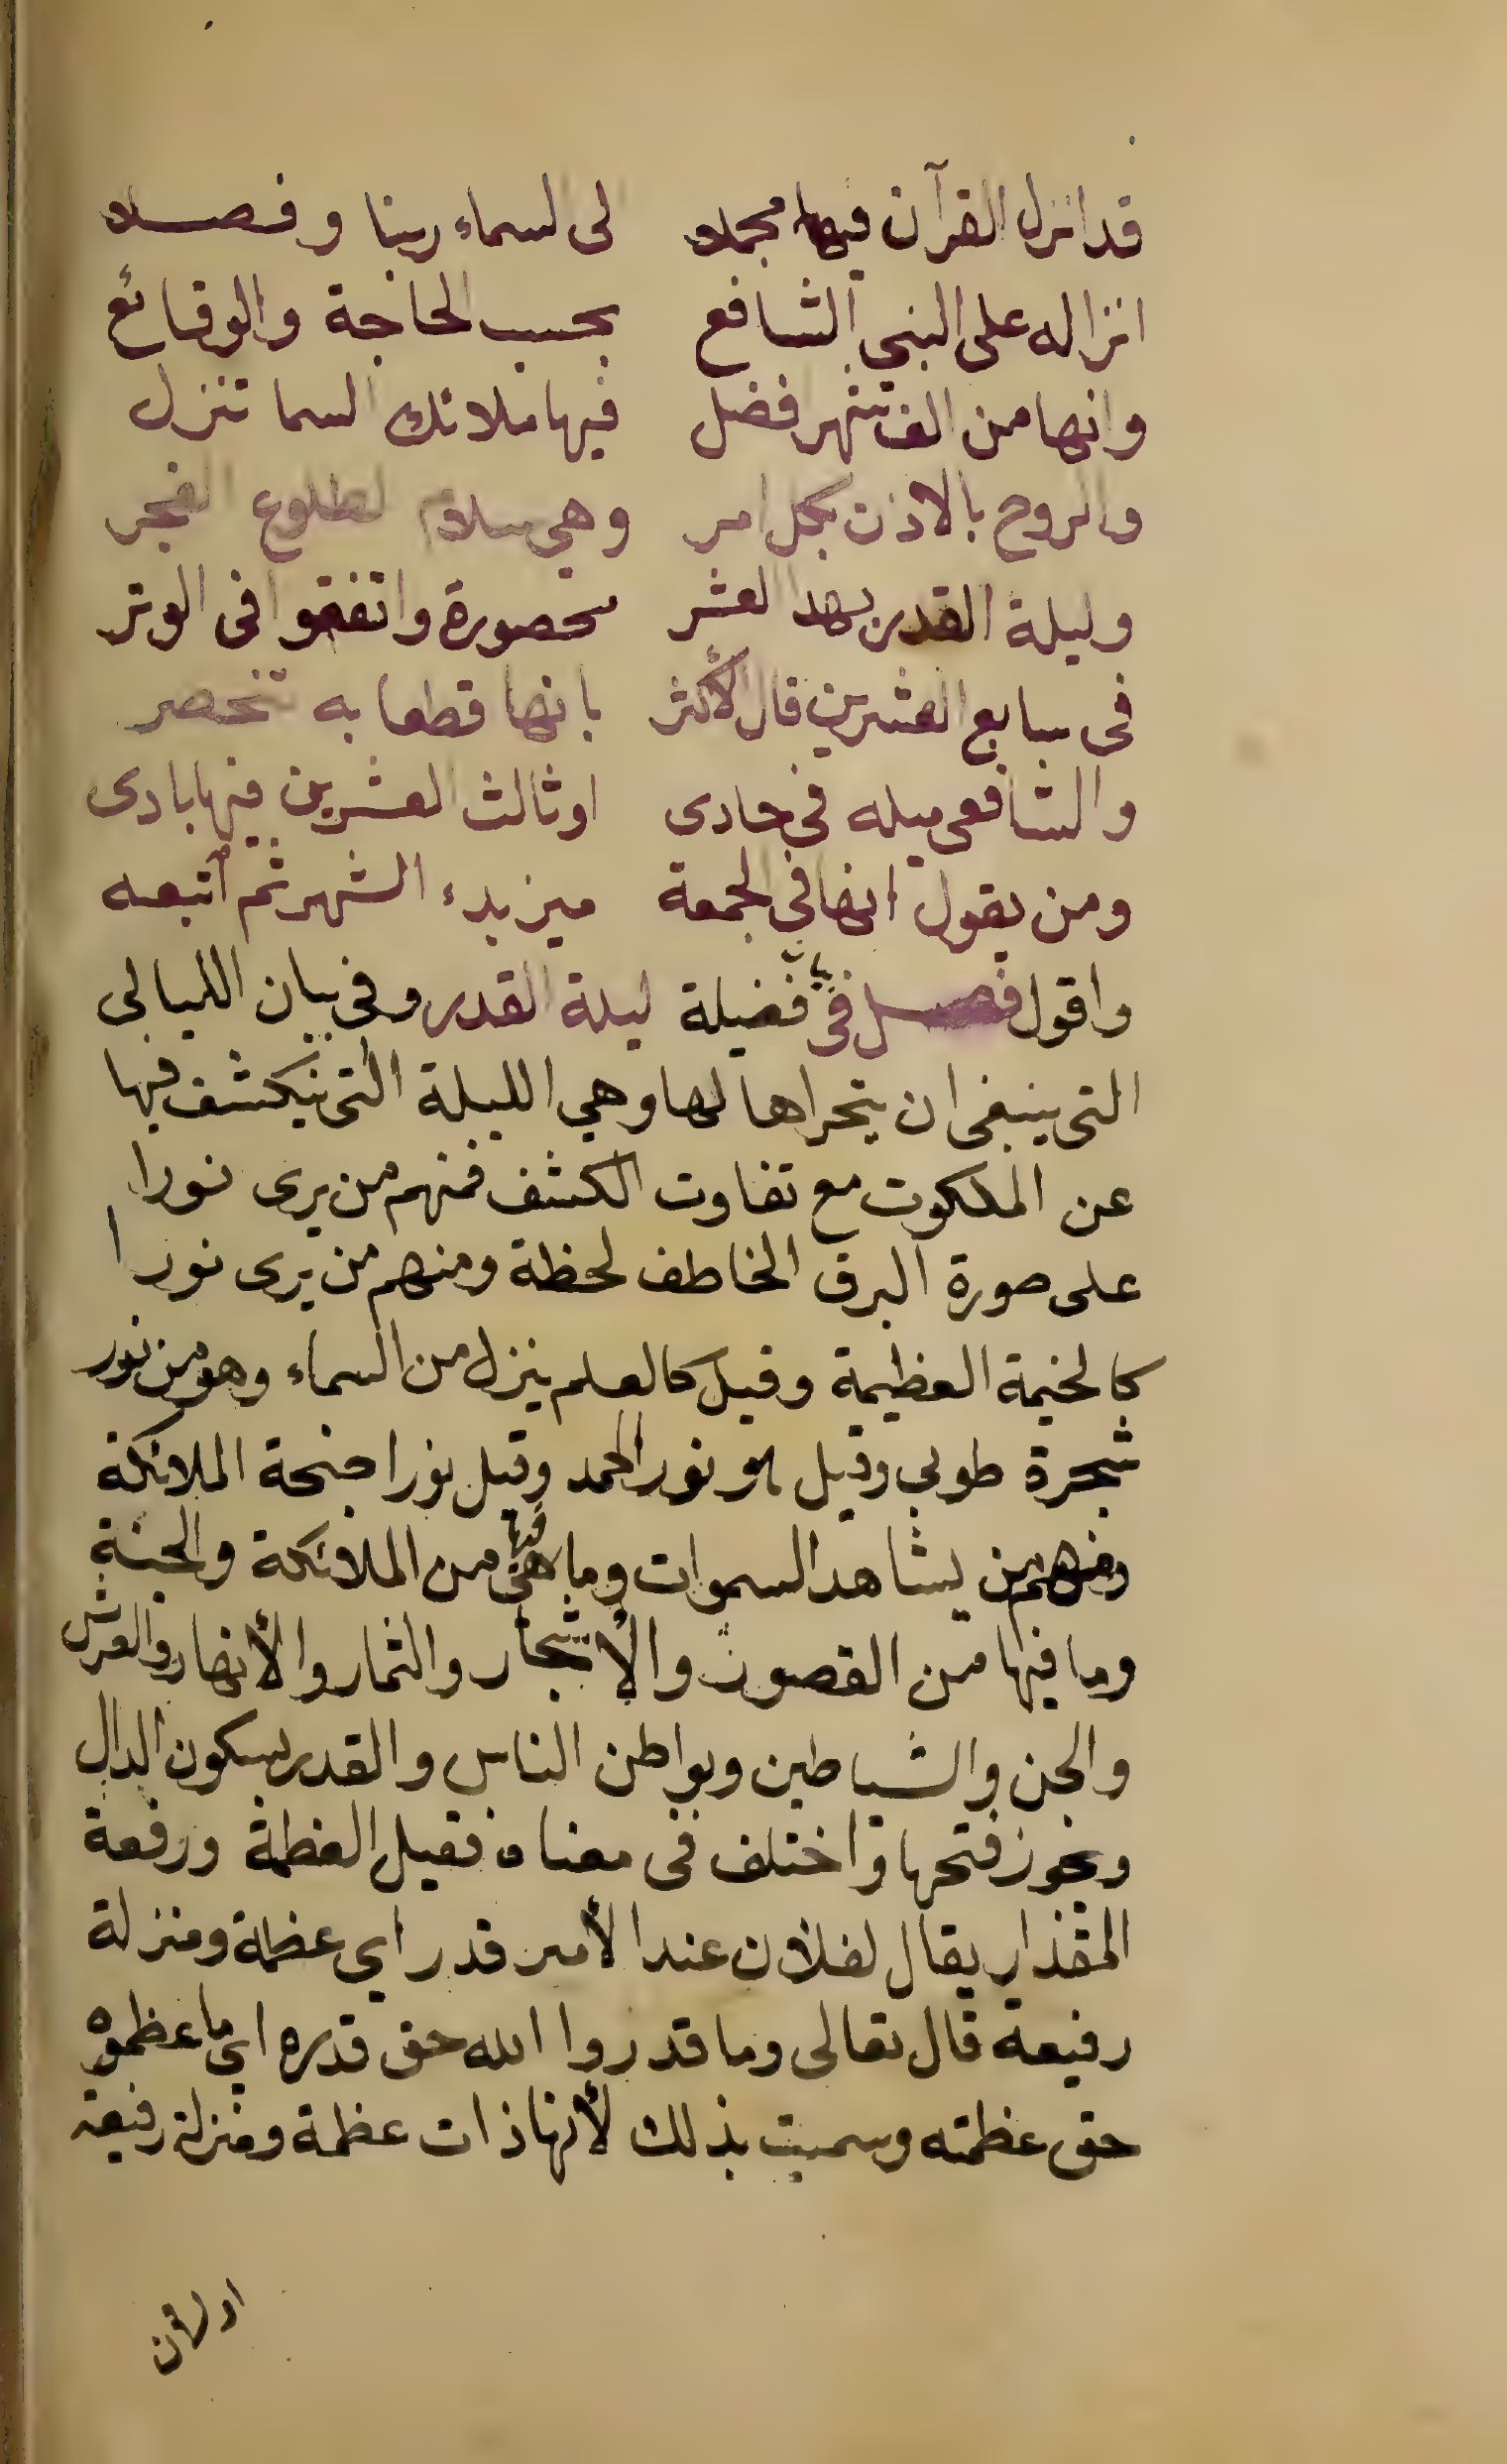 قد انزل القرآن فيها مجملا لى السماء ربنا وفصلا
انزاله على النبي الشافع بحسب الحاجة والوقائع
وانها من الف شهر افضل فيها ملائك السما تنزل
والروح بالاذن بكل امر وهي سلام لطلوع الفجر
وليلة القدر بهذا العشر محصورة واتفقوا فى الوتر
فى سابع العشرين قال الأكثر بانها قطعا به تنحصر
والشافعى ميله فى حادى او ثالث العشرين فيها بادى
ومن يقول انها في الجمعة ميز بدء الشهر ثم أتبعه
واقول فصل فى بيان فضيلة ليلة القدر وفى بيان الليالى
التى ينبغى ان يتحراها لها وهي الليلة التى ينكشف فيها
عن الملكوت مع تفاوت الكشف فمنهم من يرى نورا
على صورة البرق الخاطف لحظة ومنهم من يرى نورا
كالخيمة العظيمة وقيل كالعلم ينزل من السماء وهو من نور
شجرة طوبى وقيل هو نور الحمد وقيل نور اجنحة الملائكة
ومنهم من يشاهد السموات وما فيها من الملائكة والجنة
وما فيها من القصور والأشجار والثمار والأنهار والعرش
والجن والشياطين وبواطن الناس والقدر بسكون الدال
ويجوز فتحها واختلف فى معناه فقيل العظمة ورفعة
المقدار يقال لفلان عند الأمير قدر اي عظمة ومنزلة
رفيعة قال تعالى وما قدروا الله حق قدره اي ما عظموه
حق عظمته وسميت بذلك لأنها ذات عظمة ومنزلة رفيعة
اولان